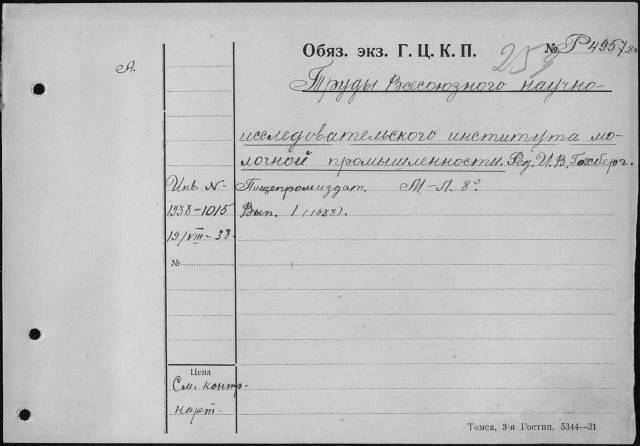 Обяз. экз. Г. Ц. К. П.
№ Р 4957
А.
Труды Всесоюзного научно-
исследовательского института мо-
лочной промышленности. Ред. И. В.
Инв. N- Пищепромиздат. М-Л. 8°
1938-1015 Вып. 1 (1938).
19/VIII-38.
№
Цена
См. контр.
карт.
Томск, 3-я Гостип. 5344—31